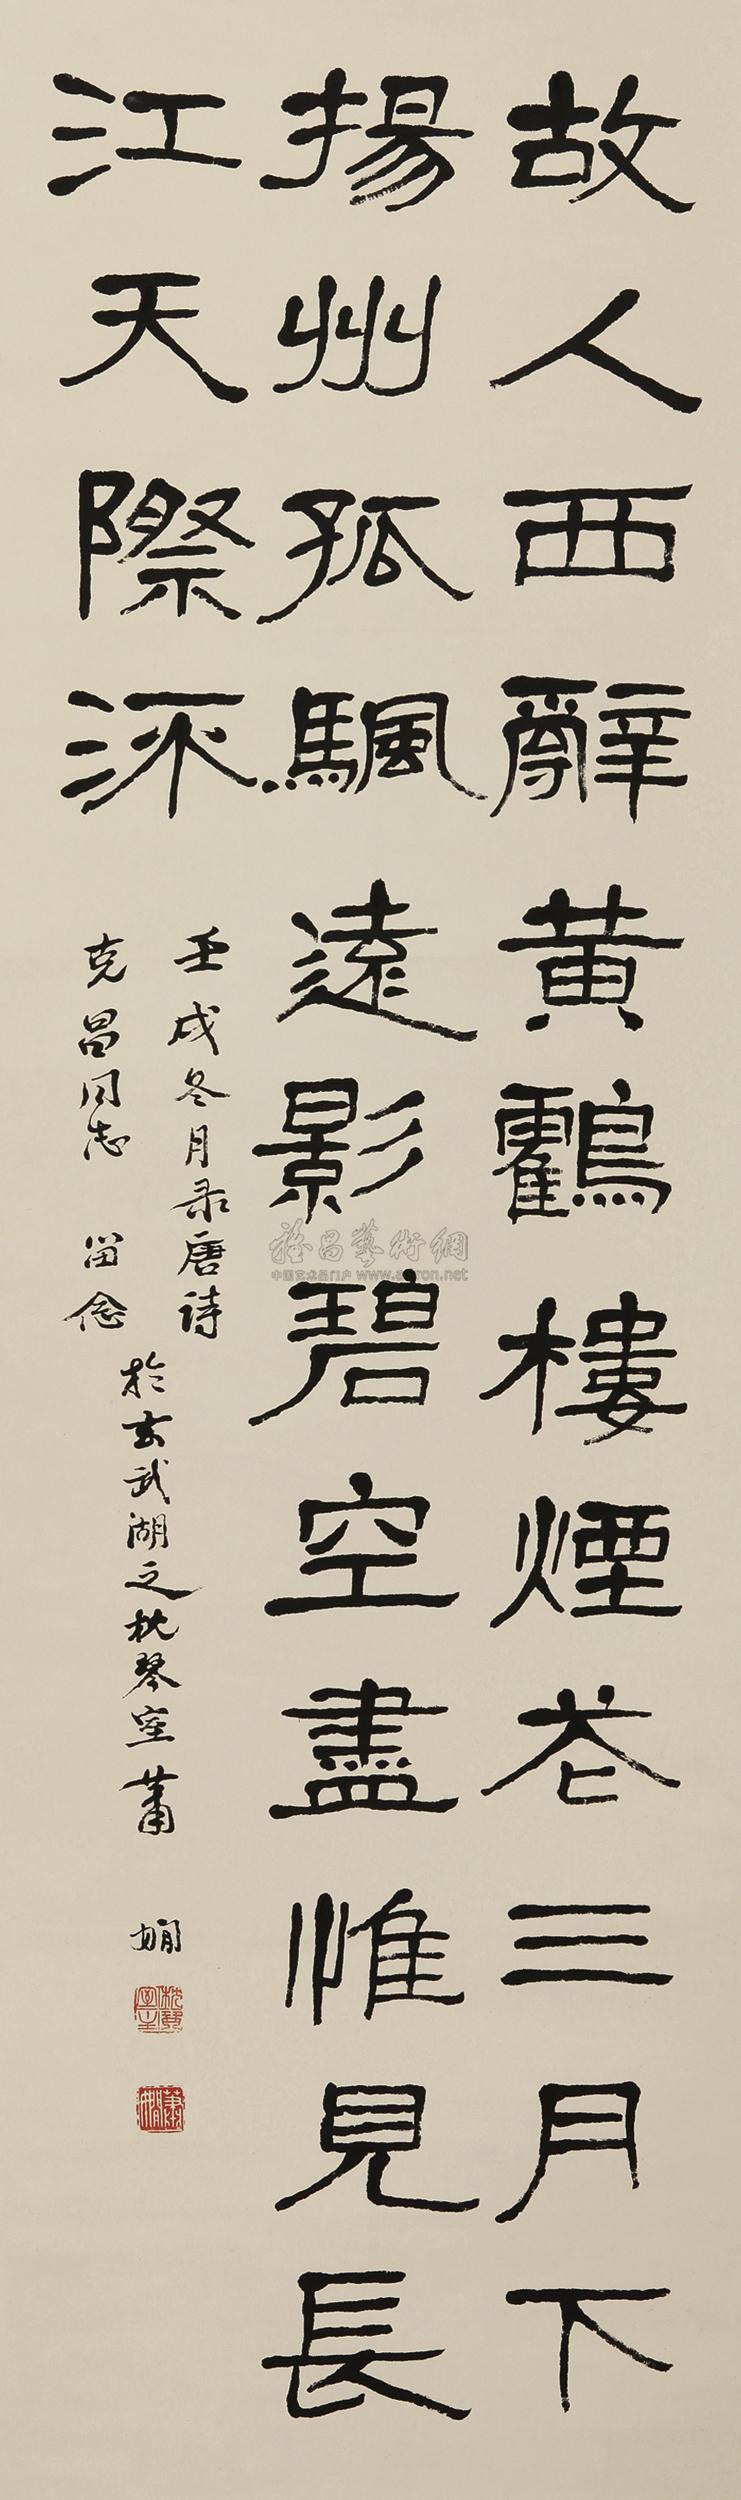 故人西辭黄鸖樓煙花三月下
揚州孤颿遠影碧空盡惟見長
江天際㳅
壬戌冬月录唐诗
克昌同志 留念
於玄武湖之枕琴室 蕭娴
枕琴室
蕭嫻
雅昌藝術網
中国艺术品门户 www.artron.net